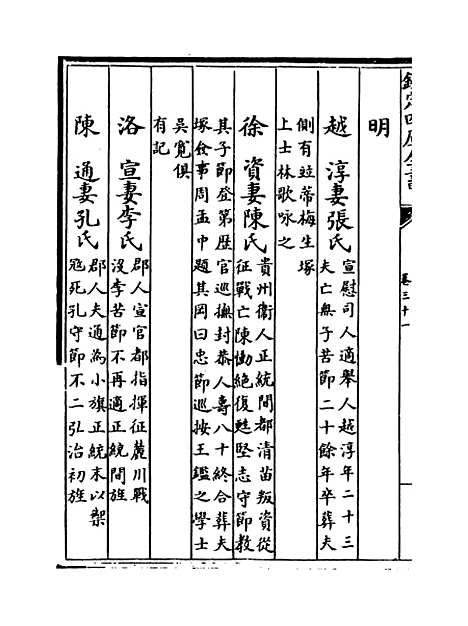 欽定四庫全書
卷三十一
明
越淳妻張氏 宣慰司人適舉人越淳年二十三
夫亡無子苦節二十餘年卒葬夫
側有竝蒂梅生塚
上士林歌咏之
徐資妻陳氏 貴州衛人正統間都清苗叛資從
征戰亡陳慟絶復甦堅志守節教
其子節登第歴官巡撫封恭人壽八十終合葬夫
塚僉事周孟中題其岡曰忠節巡按王鑑之學士
吳寛俱
有記
洛宣妻李氏 郡人宣官都指揮征麓川戰
沒李苦節不再適正統間旌
陳通妻孔氏 郡人夫通為小旗正統末以禦
冦死孔守節不二弘治初旌